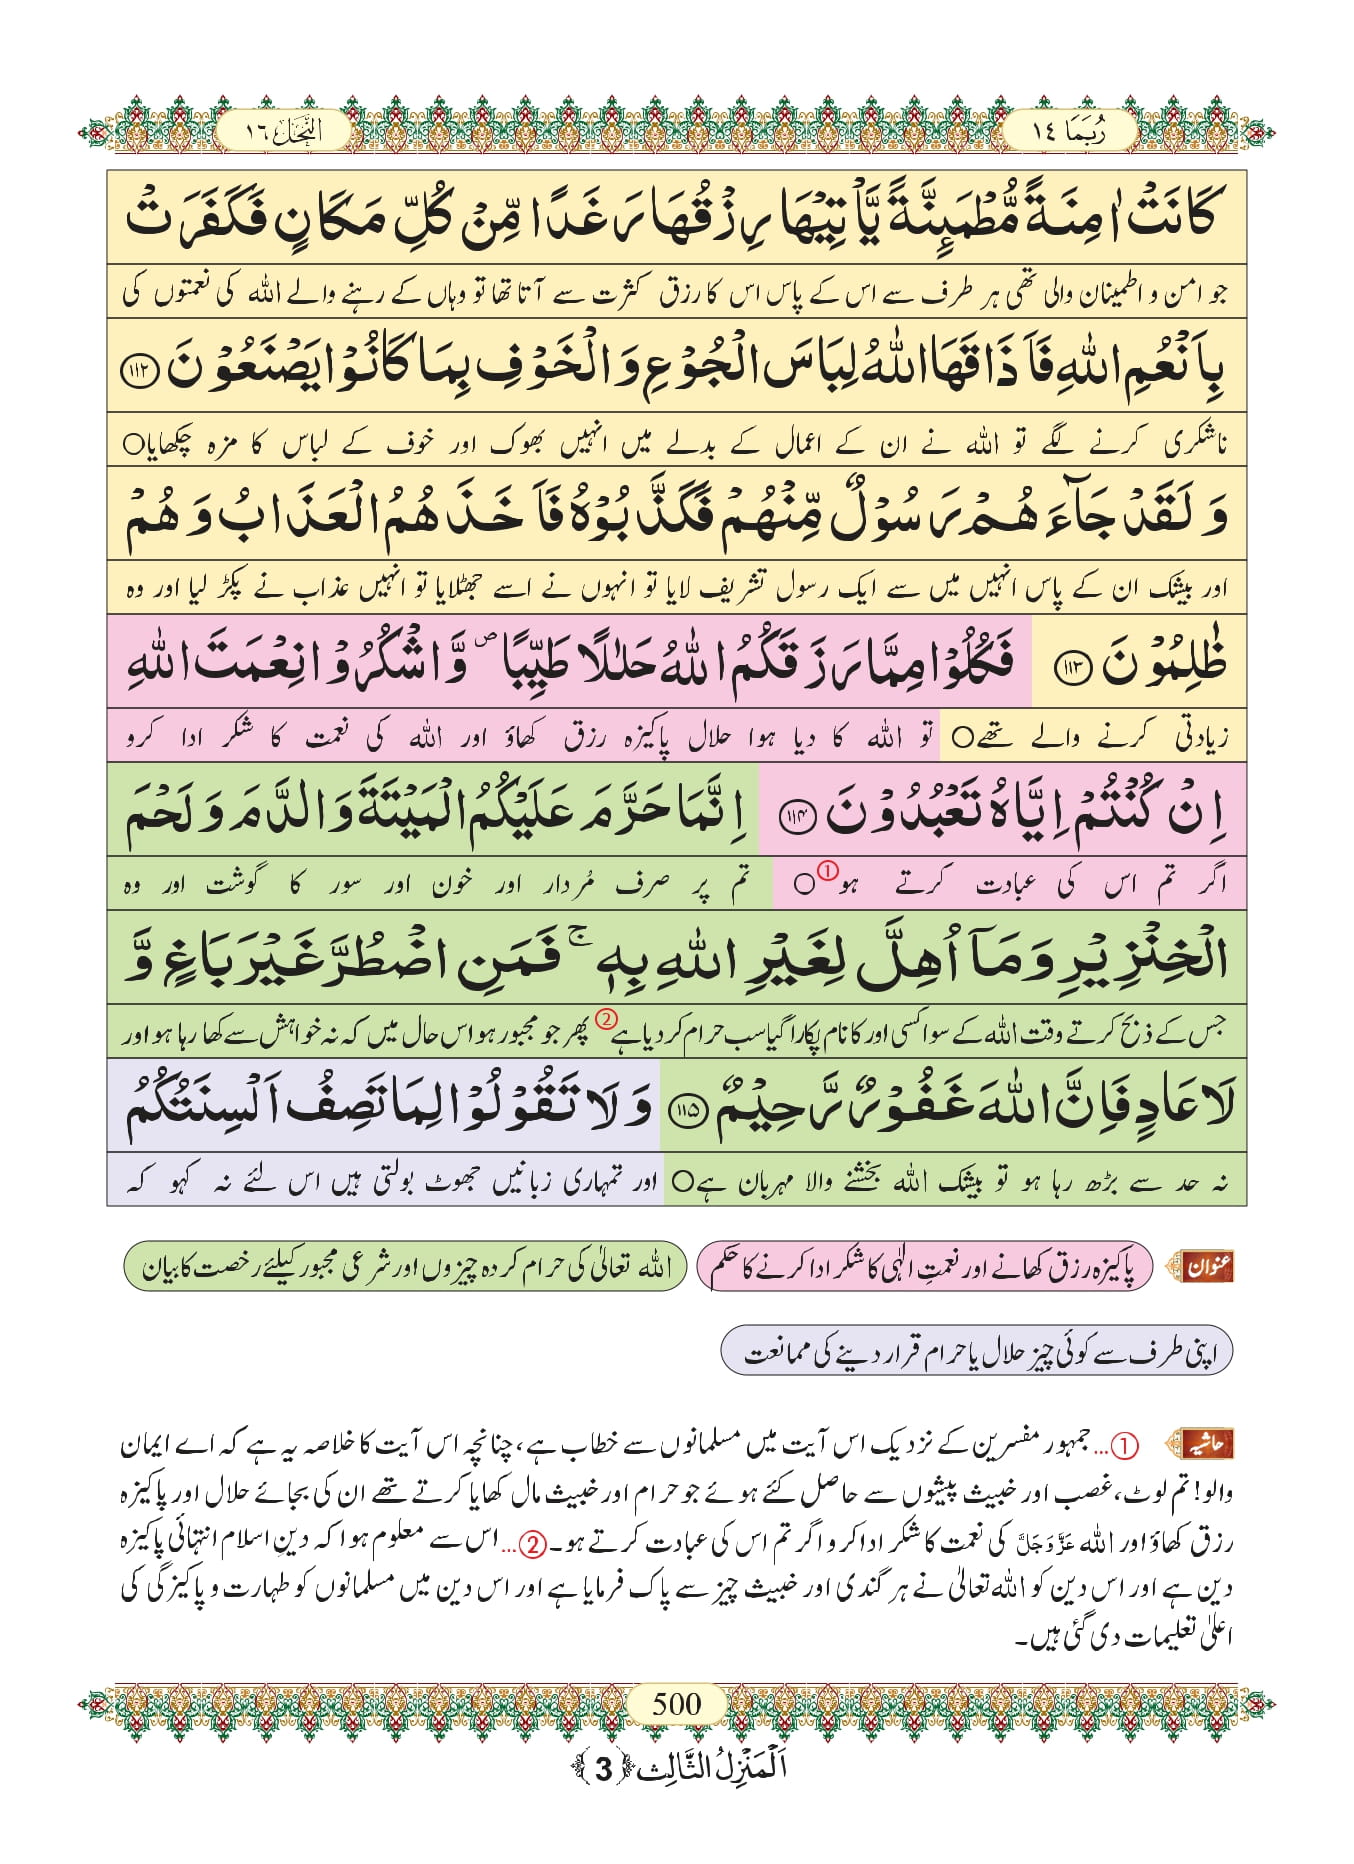 رُبَمَا ١٤
النَّحْل ١٦
كَانَتْ اٰمِنَةً مُّطْمَىِٕنَّةً یَّاْتِیْهَا رِزْقُهَا رَغَدًا مِّنْ كُلِّ مَكَانٍ فَكَفَرَتْ
جو امن و اطمینان والی تھی ہر طرف سے اس کے پاس اس کا رزق کثرت سے آتا تھا تو وہاں کے رہنے والے اللہ کی نعمتوں کی
بِاَنْعُمِ اللّٰهِ فَاَذَاقَهَا اللّٰهُ لِبَاسَ الْجُوْعِ وَ الْخَوْفِ بِمَا كَانُوْا یَصْنَعُوْنَ ﴿۱۱۲﴾
ناشکری کرنے لگے تو اللہ نے ان کے اعمال کے بدلے میں انہیں بھوک اور خوف کے لباس کا مزہ چکھایا○
وَ لَقَدْ جَآءَهُمْ رَسُوْلٌ مِّنْهُمْ فَكَذَّبُوْهُ فَاَخَذَهُمُ الْعَذَابُ وَ هُمْ
اور بیشک ان کے پاس انہیں میں سے ایک رسول تشریف لایا تو انہوں نے اسے جھٹلایا تو انہیں عذاب نے پکڑ لیا اور وہ
ظٰلِمُوْنَ ﴿۱۱۳﴾ فَكُلُوْا مِمَّا رَزَقَكُمُ اللّٰهُ حَلٰلًا طَیِّبًا ۪ وَّ اشْكُرُوْا نِعْمَتَ اللّٰهِ
زیادتی کرنے والے تھے○ تو اللہ کا دیا ہوا حلال پاکیزہ رزق کھاؤ اور اللہ کی نعمت کا شکر ادا کرو
اِنْ كُنْتُمْ اِیَّاهُ تَعْبُدُوْنَ ﴿۱۱۴﴾ اِنَّمَا حَرَّمَ عَلَیْكُمُ الْمَیْتَةَ وَ الدَّمَ وَ لَحْمَ
اگر تم اس کی عبادت کرتے ہو①○ تم پر صرف مُردار اور خون اور سور کا گوشت اور وہ
الْخِنْزِیْرِ وَ مَاۤ اُهِلَّ لِغَیْرِ اللّٰهِ بِهٖ ۚ فَمَنِ اضْطُرَّ غَیْرَ بَاغٍ وَّ
جس کے ذبح کرتے وقت اللہ کے سوا کسی اور کا نام پکارا گیا سب حرام کر دیا ہے② پھر جو مجبور ہو اس حال میں کہ نہ خواہش سے کھا رہا ہو اور
لَا عَادٍ فَاِنَّ اللّٰهَ غَفُوْرٌ رَّحِیْمٌ ﴿۱۱۵﴾ وَ لَا تَقُوْلُوْا لِمَا تَصِفُ اَلْسِنَتُكُمُ
نہ حد سے بڑھ رہا ہو تو بیشک اللہ بخشنے والا مہربان ہے○ اور تمہاری زبانیں جھوٹ بولتی ہیں اس لئے نہ کہو کہ
عنوان پاکیزہ رزق کھانے اور نعمتِ الٰہی کا شکر ادا کرنے کا حکم اللہ تعالیٰ کی حرام کردہ چیزوں اور شرعی مجبور کیلئے رخصت کا بیان
اپنی طرف سے کوئی چیز حلال یا حرام قرار دینے کی ممانعت
حاشیہ ①...جمہور مفسرین کے نزدیک اس آیت میں مسلمانوں سے خطاب ہے، چنانچہ اس آیت کا خلاصہ یہ ہے کہ اے ایمان
والو! تم لوٹ، غصب اور خبیث پیشوں سے حاصل کئے ہوئے جو حرام اور خبیث مال کھایا کرتے تھے ان کی بجائے حلال اور پاکیزہ
رزق کھاؤ اور اللہ عَزَّوَجَلَّ کی نعمت کا شکر ادا کرو اگر تم اس کی عبادت کرتے ہو۔ ②...اس سے معلوم ہوا کہ دینِ اسلام انتہائی پاکیزہ
دین ہے اور اس دین کو اللہ تعالیٰ نے ہر گندی اور خبیث چیز سے پاک فرمایا ہے اور اس دین میں مسلمانوں کو طہارت و پاکیزگی کی
اعلیٰ تعلیمات دی گئی ہیں۔
500
اَلْمَنْزِلُ الثَّالِث ﴿3﴾